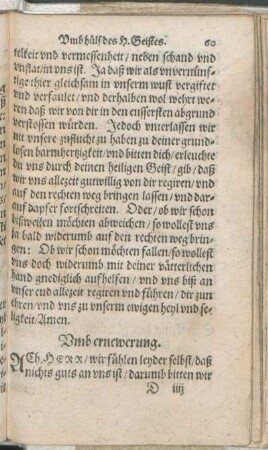 Vmb hülf des H. Geistes. 60
telkeit vnd vermessenheit / neben schand vnd
vnflat / in vns ist. Ja daß wir als vnvernünf-
tige thier gleichsam in vnserm wust vergiftet
vnd verfaulet / vnd derhalben wol wehrt we-
ren daß wir von dir in den eussersten abgrund
verstossen würden. Jedoch vnterlassen wir
nit vnsere zuflucht zu haben zu deiner grund-
losen barmhertzigkeit / vnd bitten dich / erleuchte
du vns durch deinen heiligen Geist / gib / daß
wir vns allezeit gutwillig von dir regiren / vnd
auf den rechten weg bringen lassen / vnd dar-
auf dapfer fortschreiten. Oder / ob wir schon
bißweilen möchten abweichen / so wollest vns
ja bald widerumb auf den rechten weg brin-
gen: Ob wir schon möchten fallen / so wollest
vns doch widerumb mit deiner vätterlichen
hand gnediglich aufhelfen / vnd vns biß an
vnser end allezeit regiren vnd führen / dir zun
ehren / vnd vns zu vnserm ewigen heyl vnd se-
ligkeit / Amen.
Vmb ernewerung.
ACh HERR / wir fühlen leyder selbst / daß
nichts guts an vns ist / darumb bitten wir
D iiij